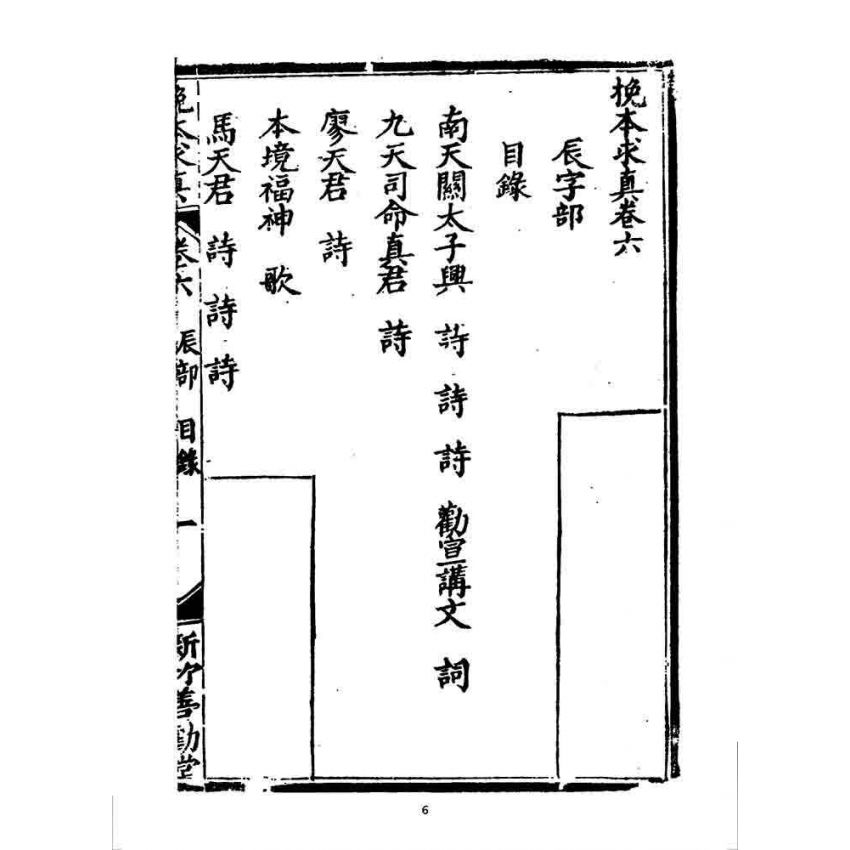 挽本求真卷六
辰字部
目錄
南天關太子興 詩 詩 詩 勸宣講文 詞
九天司命真君 詩
廖天君 詩
本境福神 歌
馬天君 詩 詩 詩
挽本求真 卷六 辰部 目錄 一 勸善堂
6